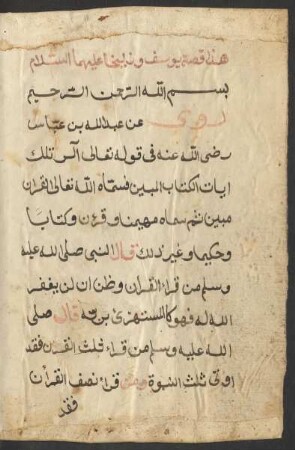 هذا قصة يوسف وزليخا عليهما السلام
بسم الله الرحمن الرحيم
روى عن عبد الله بن عباس
رضى الله عنه فى قوله تعالى الر تلك
ايات الكتاب المبين فسماه الله تعالى القران
مبين ثم سماه مهيمنا و قرءن وكتابا
وحكيما وغير ذلك قال النبى صلى الله عليه
وسلم من قراء القران وظن ان لن يغفر
الله له فهو كالمستهزئ بربه قال صلى
الله عليه وسلم من قراء ثلث القرءن فقد
اوتى ثلث النبوة ومن قراء نصف القرأن
فقد